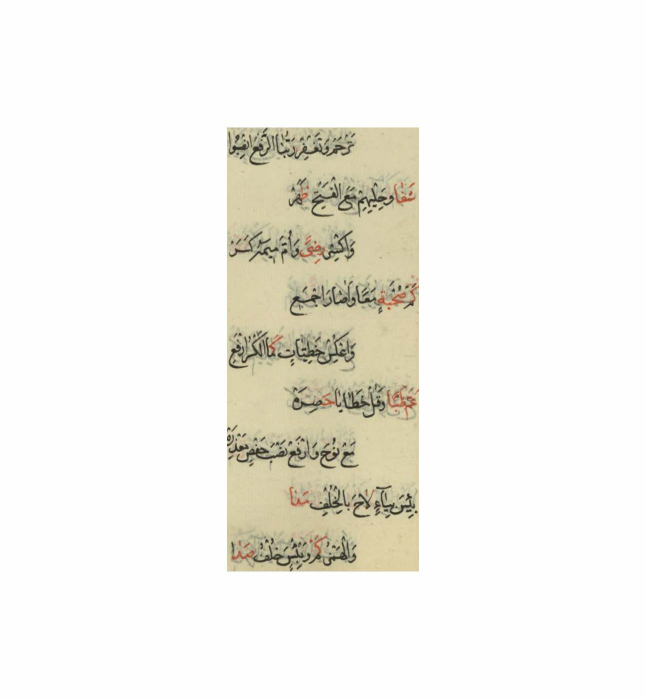 تَرْحَمْ وَتَغْفِرْ رَبَّنَا الرَّفْعَ انْصِبُوا
شَفَا وَحَلْيِهِمْ مَعَ الْفَتْحِ ظَهَرْ
وَاكْسِرْ رِضًى وَأُمَّ مِيمَهُ كَسَرْ
كَمْ صُحْبَةٍ مَعًا وَآصَارَ اجْمَعِ
وَاعْكِسْ خَطِيئَاتِ كَمَا الْكَسْرَ ارْفَعِ
عَمَّ ظُبًا وَقُلْ خَطَايَا حَصَرَهْ
مَعْ نُوحَ وَارْفَعْ نَصْبَ حَفْصٍ مَعْذِرَهْ
بِيسَ بِيَاءٍ لَاحَ بِالْخُلْفِ مَدَا
وَالْهَمْزُ كَمْ وَبَيْئَسٍ خُلْفٌ صَدَا